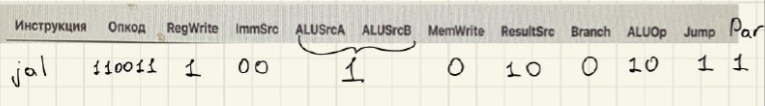 Инструкция Опкод RegWrite ImmSrc ALUSrcA ALUSrcB MemWrite ResultSrc Branch ALUOp Jump Par
jal 110011 1 00 1 0 10 0 10 1 1